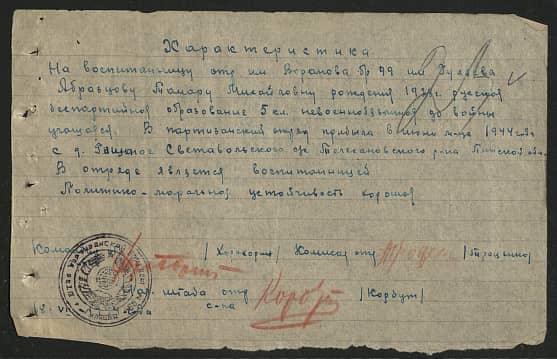 Характеристика
На воспитаницу отр им Воронова бр 99 им Гуляева
Образцову Тамару Михайловну рождения русская
беспартийная образование 5 кл. невоеннообязаная до войны
учащаяся. В партизанский отряд прибыла в июни м-це 1944 года
с д. Святавольского с/с Телехановского р-на Пинской обл.
В отряде является воспитаницей
Политико-моральноя устойчивость хорошая
/ Комисар отр /Троценко/
штаба отр Корбут /Корбут/
с-на